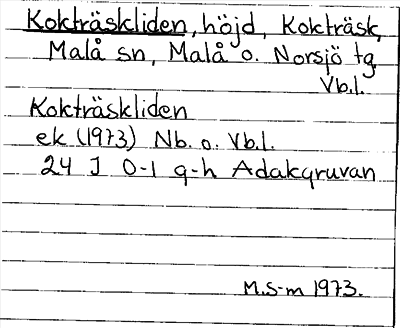 Kokträskliden, höjd, Kokträsk,
Malå sn, Malå o. Norsjö tg
Vb.l.
Kokträskliden
ek (1973) Nb. o. Vb.l.
24 J 0-1 g-h Adakgruvan
M.S-m 1973.